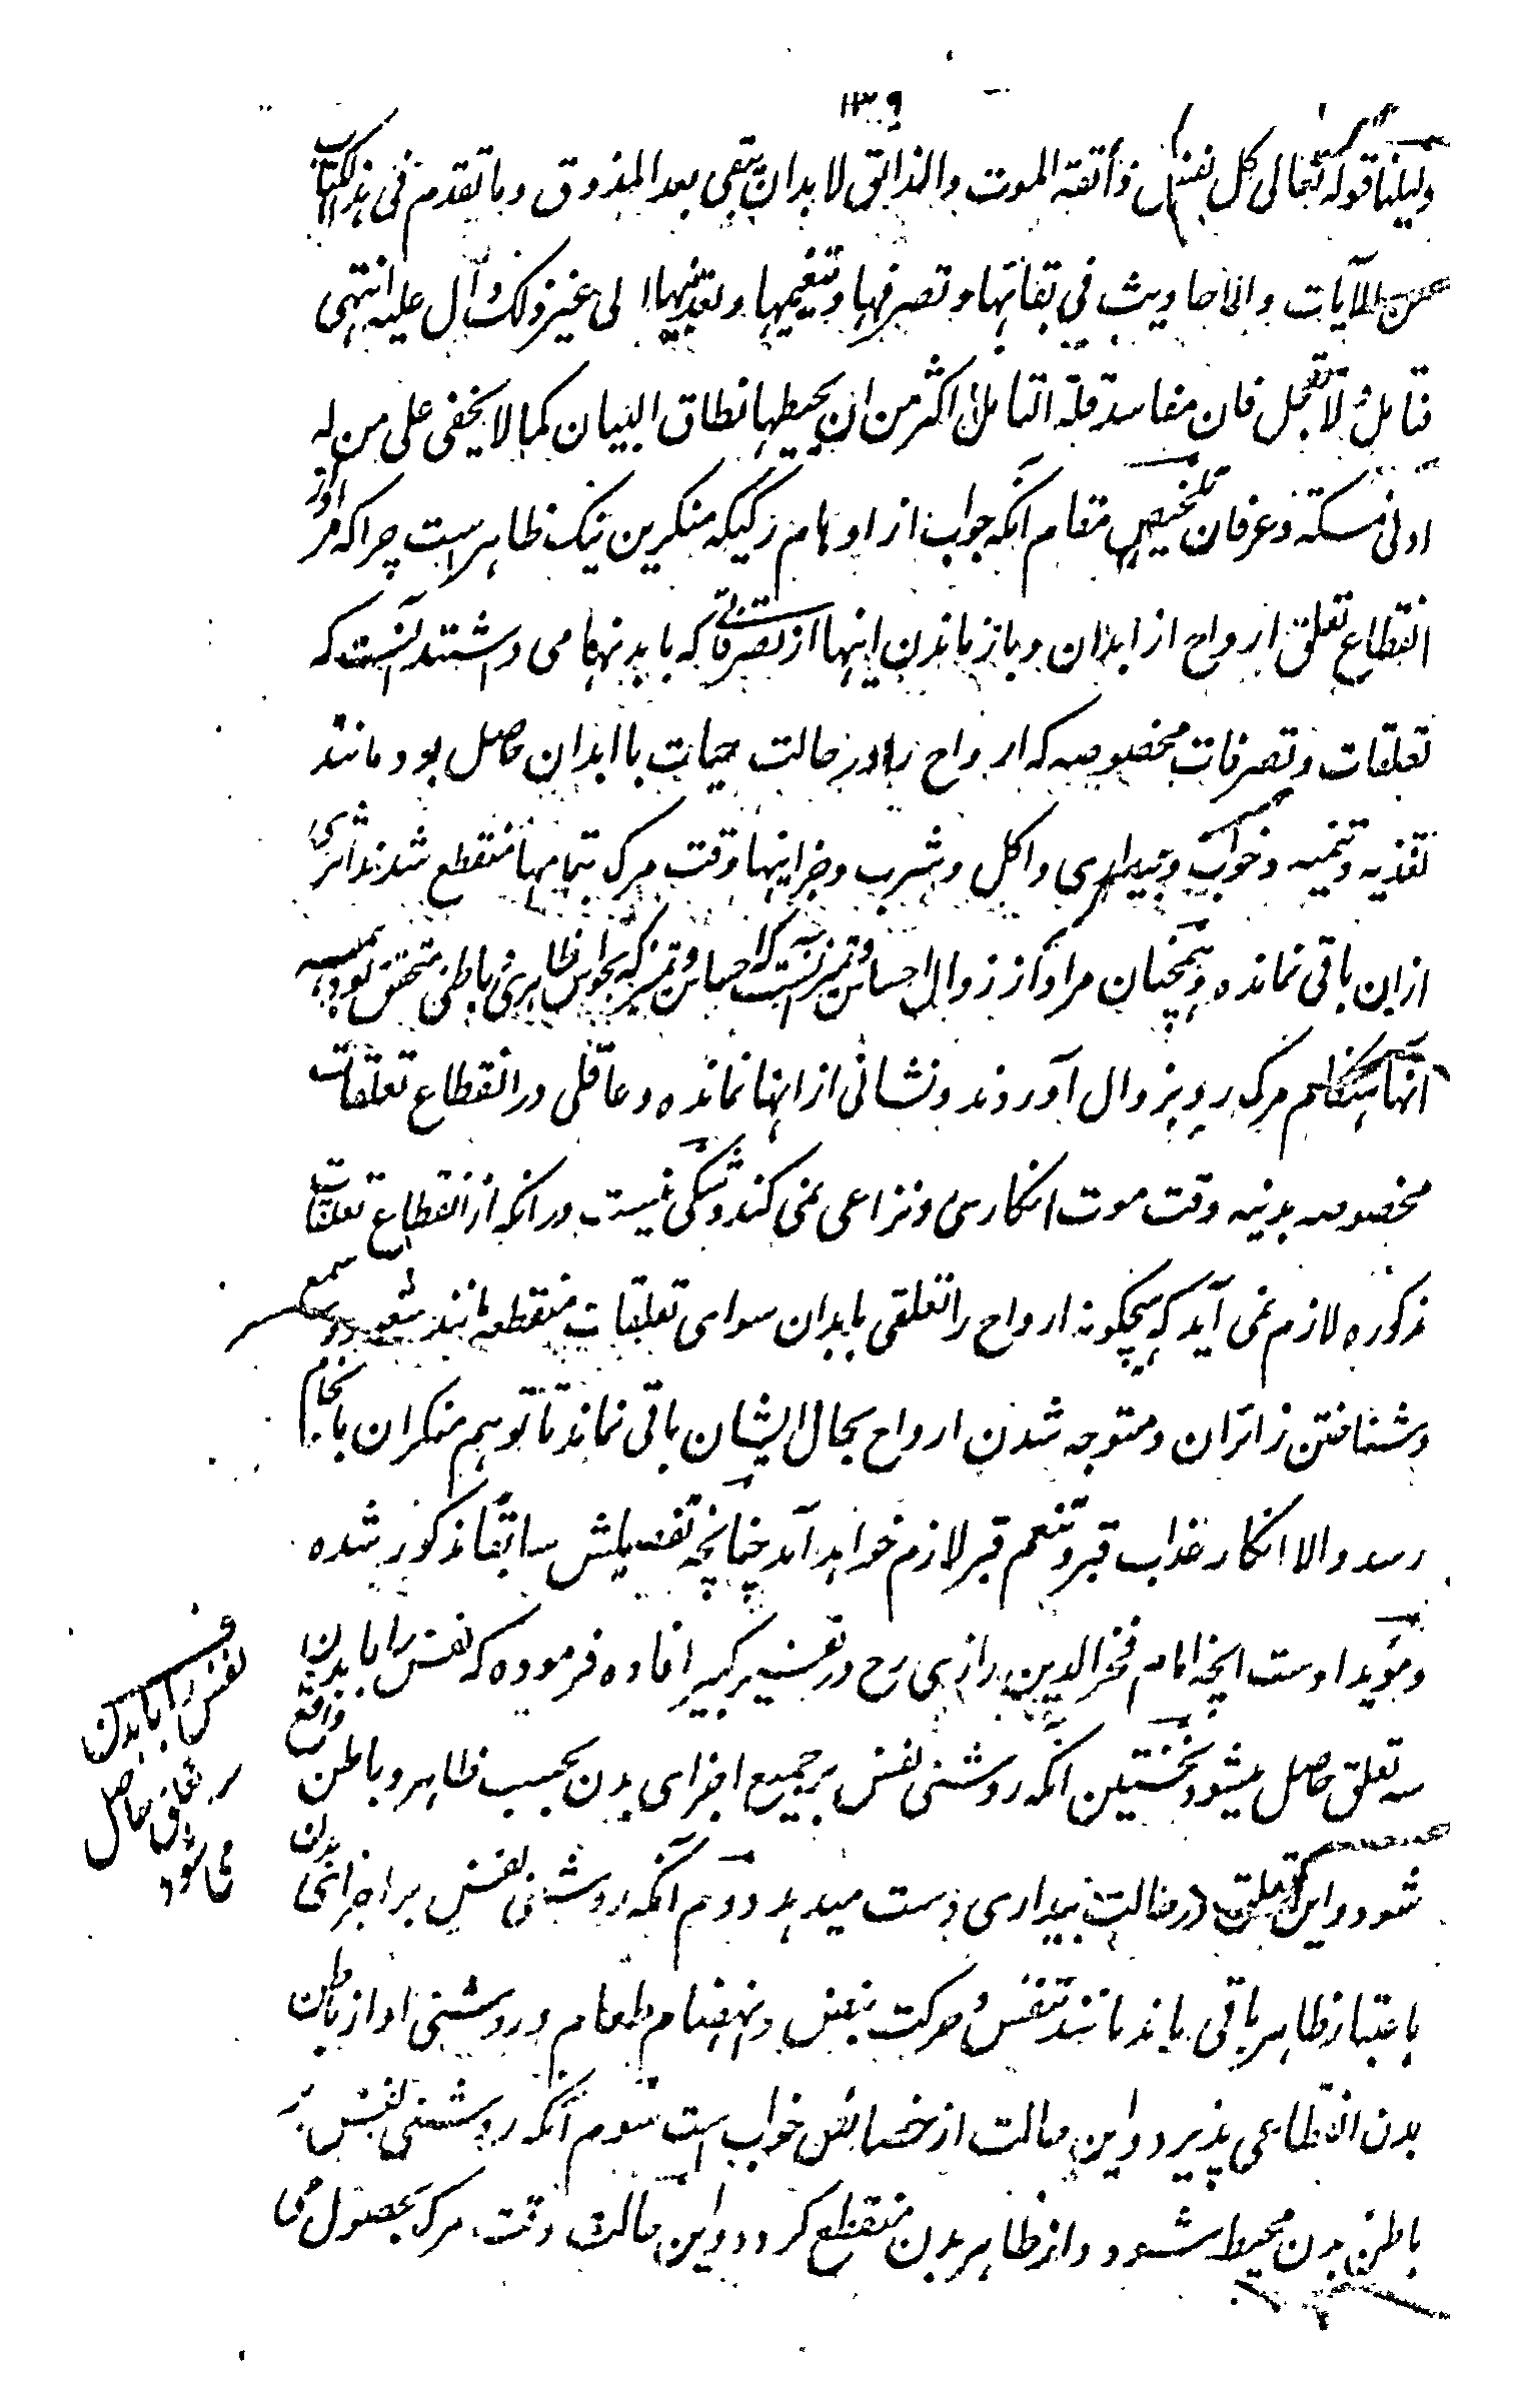 ۱۳۹
دلیلنا قوله تعالی کل نفس ذائقة الموت والذائق لا بد ان یبقی بعد المذوق وما تقدم فی هذا الکتاب
من الآیات والاحادیث فی بقائها وتصرفها وتنعیمها وتعذیبها الی غیر ذلک دال علیه انتهی
فتامل ولا تعجل فان مفاسد قلة التامل اکثر من ان یحیطها نطاق البیان کما لا یخفی علی من له
ادنی مسکة وعرفان تلخیص مقام آنکه جواب از اوهام رکیکه منکرین نیک ظاهر است چرا که مراد از
انقطاع تعلق ارواح از ابدان وباز ماندن اینها از تصرفاتی که با بدنها می داشتند آنست که
تعلقات وتصرفات مخصوصه که ارواح را در حالت حیات با ابدان حاصل بود مانند
تغذیه وتنمیه وخواب وبیداری واکل وشرب وجز اینها وقت مرک بتمامها منقطع شدند اثری
ازان باقی نمانده وهمچنان مراد از زوال احساس وتمیز آنست که احساس وتمیز که بحواس ظاهری وباطنی متحقق بود همه
آنها هنکام مرک رو بزوال آوردند ونشانی از انها نمانده وعاقلی در انقطاع تعلقات
مخصوصه بدنیه وقت موت انکاری ونزاعی نمی کند وشکی نیست در انکه از انقطاع تعلقات
مذکوره لازم نمی آید که هیچکونه ارواح را تعلقی بابدان سوای تعلقات منقطعه مانند شعور وسمع
وشناختن زائران ومتوجه شدن ارواح بحال ایشان باقی نماند تا توهم منکران بانجام
رسد والا انکار عذاب قبر وتنعم قبر لازم خواهد آمد چنانچه تفصیلش سابقا مذکور شده
ومؤید اوست انچه امام فخر الدین رازی رح در تفسیر کبیر افاده فرموده که نفس را با بدن
سه تعلق حاصل میشود نخستین انکه روشنی نفس بر جمیع اجزای بدن بحسب ظاهر وباطن واقع
شود واین تعلق در حالت بیداری دست میدهد دوم آنکه روشنی نفس بر اجزای بدن
باعتبار ظاهر باقی ماند مانند تنفس وحرکت نبض وانهضام طعام وروشنی او از باطن
بدن انقطاعی پذیرد واین حالت از خصائص خواب است سوم آنکه روشنی نفس بر
باطن بدن محیط شود واز ظاهر بدن منقطع کردد واین حالت وقت مرک بحصول می
ف
نفس را با بدن
سه تعلق حاصل
می شود